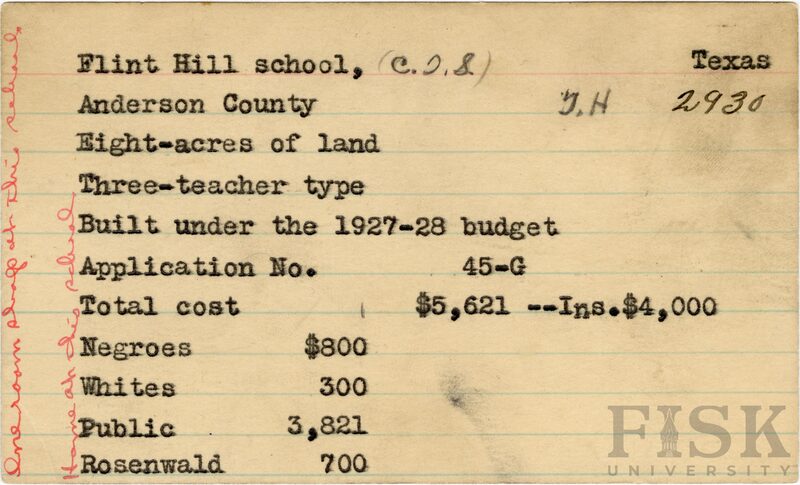 Flint Hill school, (C.T.S.) Texas
Anderson County T.H 2930
Eight-acres of land
Three-teacher type
Built under the 1927-28 budget
Application No. 45-G
Total cost $5,621 --Ins.$4,000
Negroes $800
Whites 300
Public 3,821
Rosenwald 700
One room shop at this school
Home at this school
FISK
UNIVERSITY